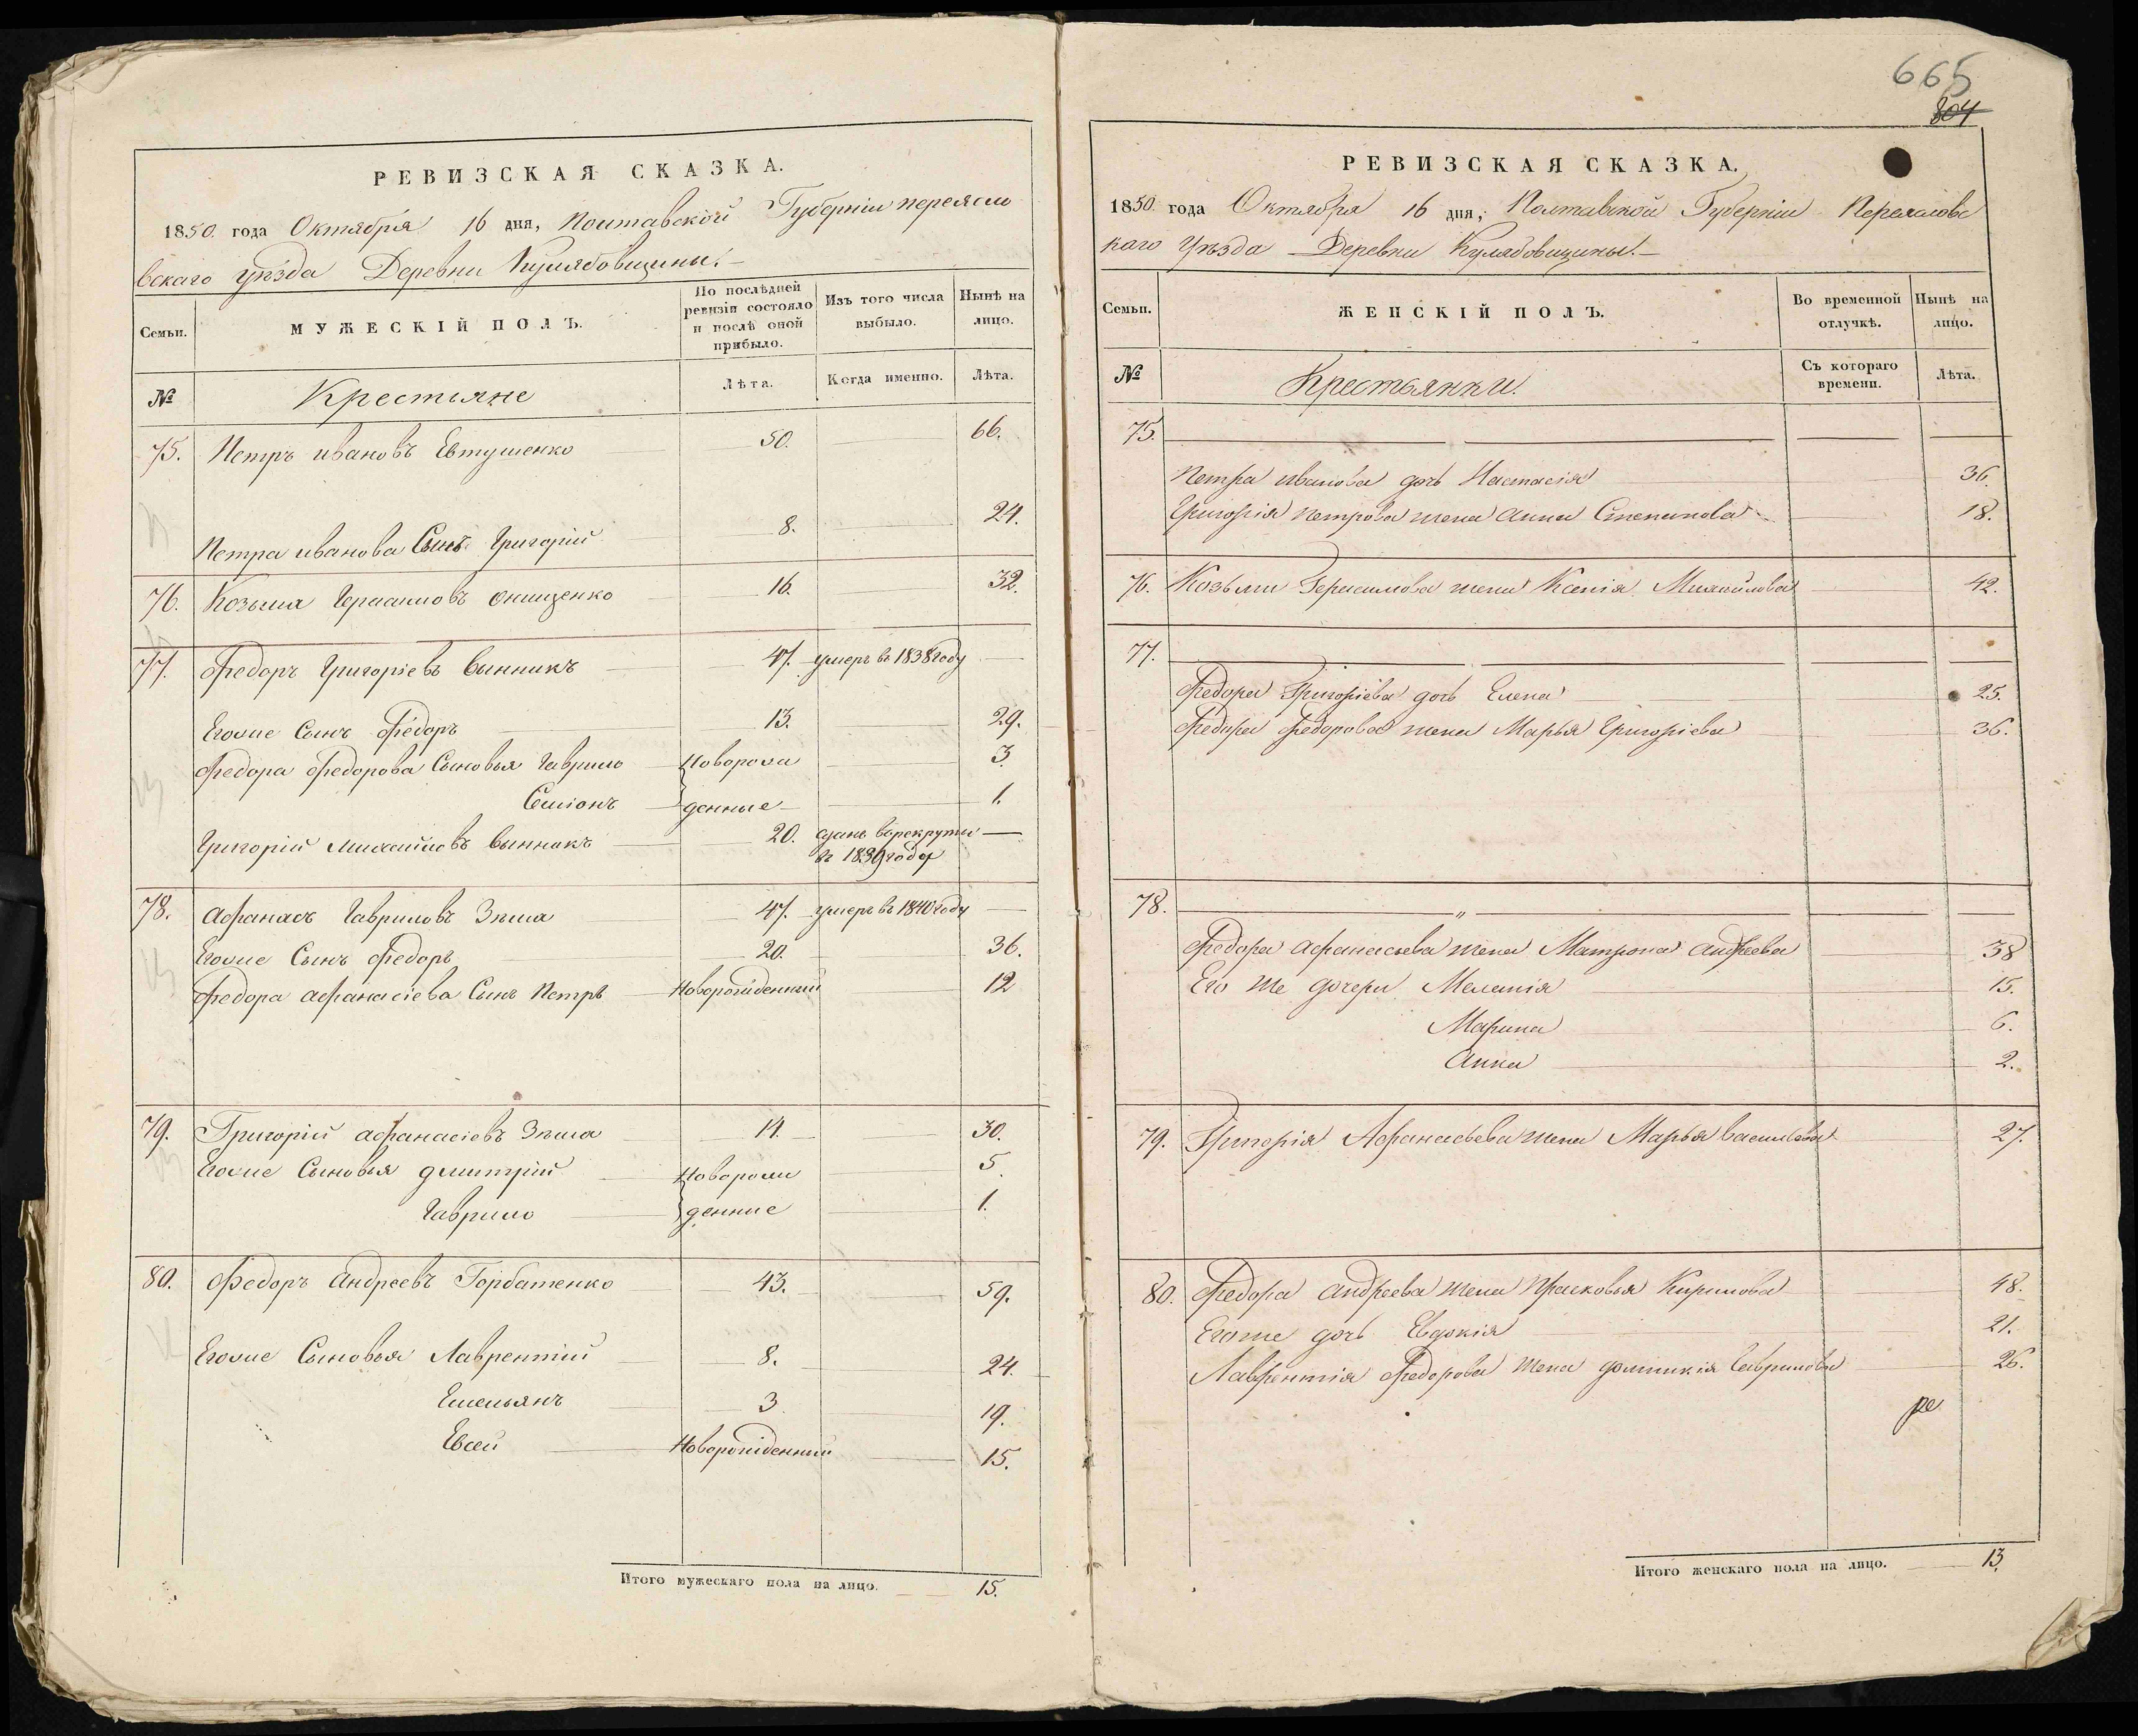 РЕВИЗСКАЯ СКАЗКА.
1850. года Октября 16 дня, Полтавской Губерніи переясло
вскаго уѣзда Деревни Кулябовщины.
Семьи.
МУЖЕСКІЙ ПОЛЪ.
По послѣдней ревизіи состояло и послѣ оной прибыло.
Изъ того числа выбыло.
Нынѣ на лицо.
№
Крестьяне
Лѣта.
Когда именно.
Лѣта.
75. Петръ ивановъ Евтушенко 50. 66.
Петра иванова Сынъ Григорій 8. 24.
76. Козьма Герасимовъ онищенко 16. 32.
77. Федоръ Григоріевъ винникъ 47. умеръ въ 1838 году
Егоже Сынъ Федоръ 13. 29.
Федора Федорова Сыновья Гаврило Новорож 3.
Семіонъ денные 1.
Григорій михайловъ винникъ 20. зданъ врекруты
въ 1839 году
78. Афанасъ Гавриловъ Зима 47. умеръ въ 1840 году
Егоже Сынъ Федоръ 20. 36.
Федора афанасіева Сынъ Петръ Новорожденный 12
79. Григорій афанасіевъ Зима 14. 30.
Егоже Сыновья дмитрій Новорож 5.
Гаврило денные 1.
80. Федоръ Андреевъ Горбатенко 43. 59.
Егоже Сыновья Лаврентій 8. 24.
Емельянъ 3 19.
Евсей Новорожденный 15.
Итого мужескаго пола на лицо. 15.
665
804
РЕВИЗСКАЯ СКАЗКА.
1850. года Октября 16 дня, Полтавской Губерніи Переяловс
каго Уѣзда Деревни Кулябовщины.
Семьи.
ЖЕНСКІЙ ПОЛЪ.
Во временной отлучкѣ.
Нынѣ на лицо.
№
Крестьянки.
Съ котораго времени.
Лѣта.
75.
Петра иванова дочь Настасія 36.
Григорія петрова жена Анна Степанова 18.
76. Козьмы Герасимова жена Ксенія Михайлова 42.
77.
Федора Григоріева дочь Елена 25.
Федора Федорова жена Марья Григоріева 36.
78. "
Федора афанасьева жена Матрона андреева 38
Его же дочери Меланія 15.
Марина 6.
Анна 2.
79. Григорія Афанасьева жена Марья васильева 27.
80. Федора андреева жена Прасковья Кирилова 48.
Егоже дочь Евдокія 21.
Лаврентія Федорова жена домникія Гаврилова 26.
ре
Итого женскаго пола на лицо. 13.